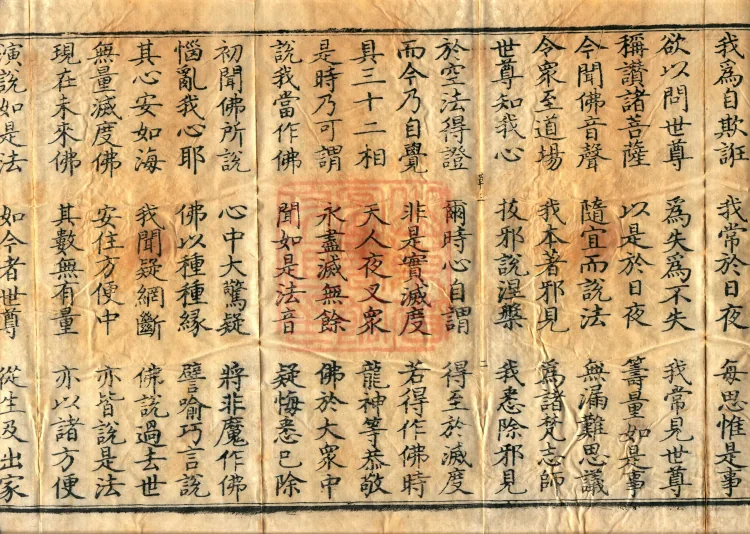 我爲自欺誑　我常於日夜　每思惟是事
欲以問世尊　爲失爲不失　我常見世尊
稱讚諸菩薩　以是於日夜　籌量如是事
今聞佛音聲　隨宜而說法　無漏難思議
令衆至道場　我本著邪見　爲諸梵志師
世尊知我心　拔邪說涅槃　我悉除邪見
於空法得證　爾時心自謂　得至於滅度
而今乃自覺　非是實滅度　若得作佛時
具三十二相　天人夜叉衆　龍神等恭敬
是時乃可謂　永盡滅無餘　佛於大衆中
說我當作佛　聞如是法音　疑悔悉已除
初聞佛所說　心中大驚疑　將非魔作佛
惱亂我心耶　佛以種種緣　譬喻巧言說
其心安如海　我聞疑網斷　佛說過去世
無量滅度佛　安住方便中　亦皆說是法
現在未來佛　其數無有量　亦以諸方便
演說如是法　如今者世尊　從生及出家